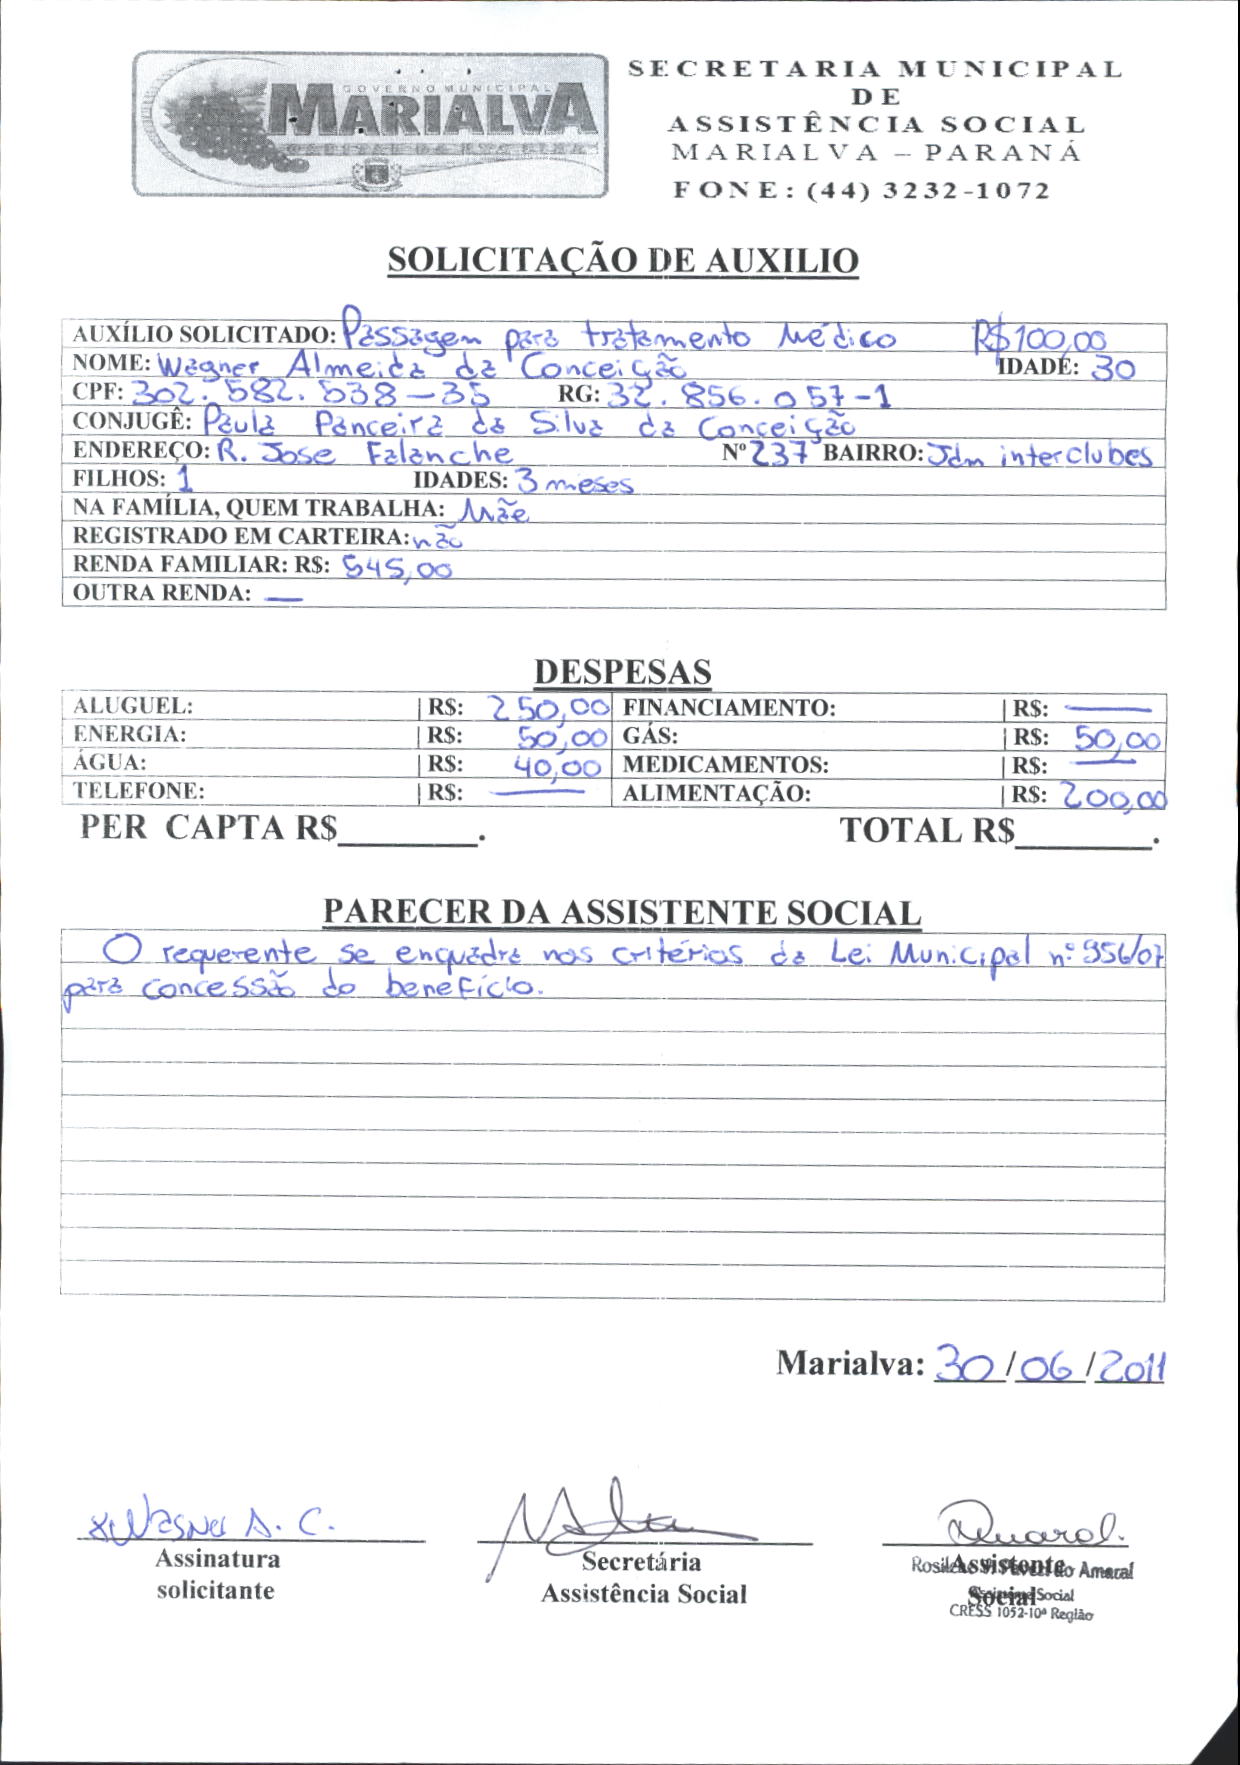 GOVERNO MUNICIPAL
MARIALVA
CAPITAL DA UVA FINA
SECRETARIA MUNICIPAL
DE
ASSISTÊNCIA SOCIAL
MARIALVA – PARANÁ
FONE: (44) 3232-1072
SOLICITAÇÃO DE AUXILIO
AUXÍLIO SOLICITADO: Passagem para tratamento Médico R$ 100,00
NOME: Wagner Almeida da Conceição IDADE: 30
CPF: 302.582.538-35 RG: 32.856.057-1
CONJUGÊ: Paula Panceira da Silva da Conceição
ENDEREÇO: R. Jose Falanche Nº 237 BAIRRO: Jdm interclubes
FILHOS: 1 IDADES: 3 meses
NA FAMÍLIA, QUEM TRABALHA: Mãe
REGISTRADO EM CARTEIRA: não
RENDA FAMILIAR: R$: 545,00
OUTRA RENDA: —
DESPESAS
ALUGUEL: | R$: 250,00 FINANCIAMENTO: | R$: —
ENERGIA: | R$: 50,00 GÁS: | R$: 50,00
ÁGUA: | R$: 40,00 MEDICAMENTOS: | R$: —
TELEFONE: | R$: — ALIMENTAÇÃO: | R$: 200,00
PER CAPTA R$________. TOTAL R$________.
PARECER DA ASSISTENTE SOCIAL
O requerente se enquadra nos critérios da Lei Municipal nº 956/07
para concessão do benefício.
Marialva: 30/06/2011
x Wagner A. C.
Assinatura Secretária Assistente
solicitante Assistência Social Social
do Amaral
Assistente Social
CRESS 1052-10ª Região